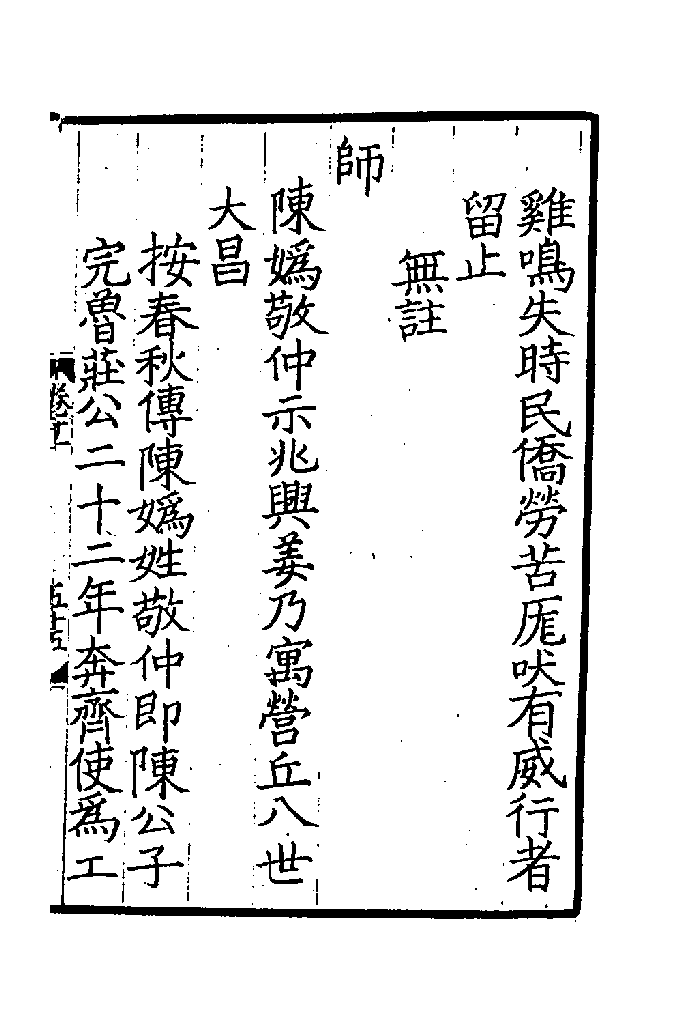 雞鳴失時民僑勞苦厖吠有威行者
留止
無註
師
陳嬀敬仲示兆興姜乃寓營丘八世
大昌
按春秋傳陳嬀姓敬仲即陳公子
完魯莊公二十二年奔齊使爲工